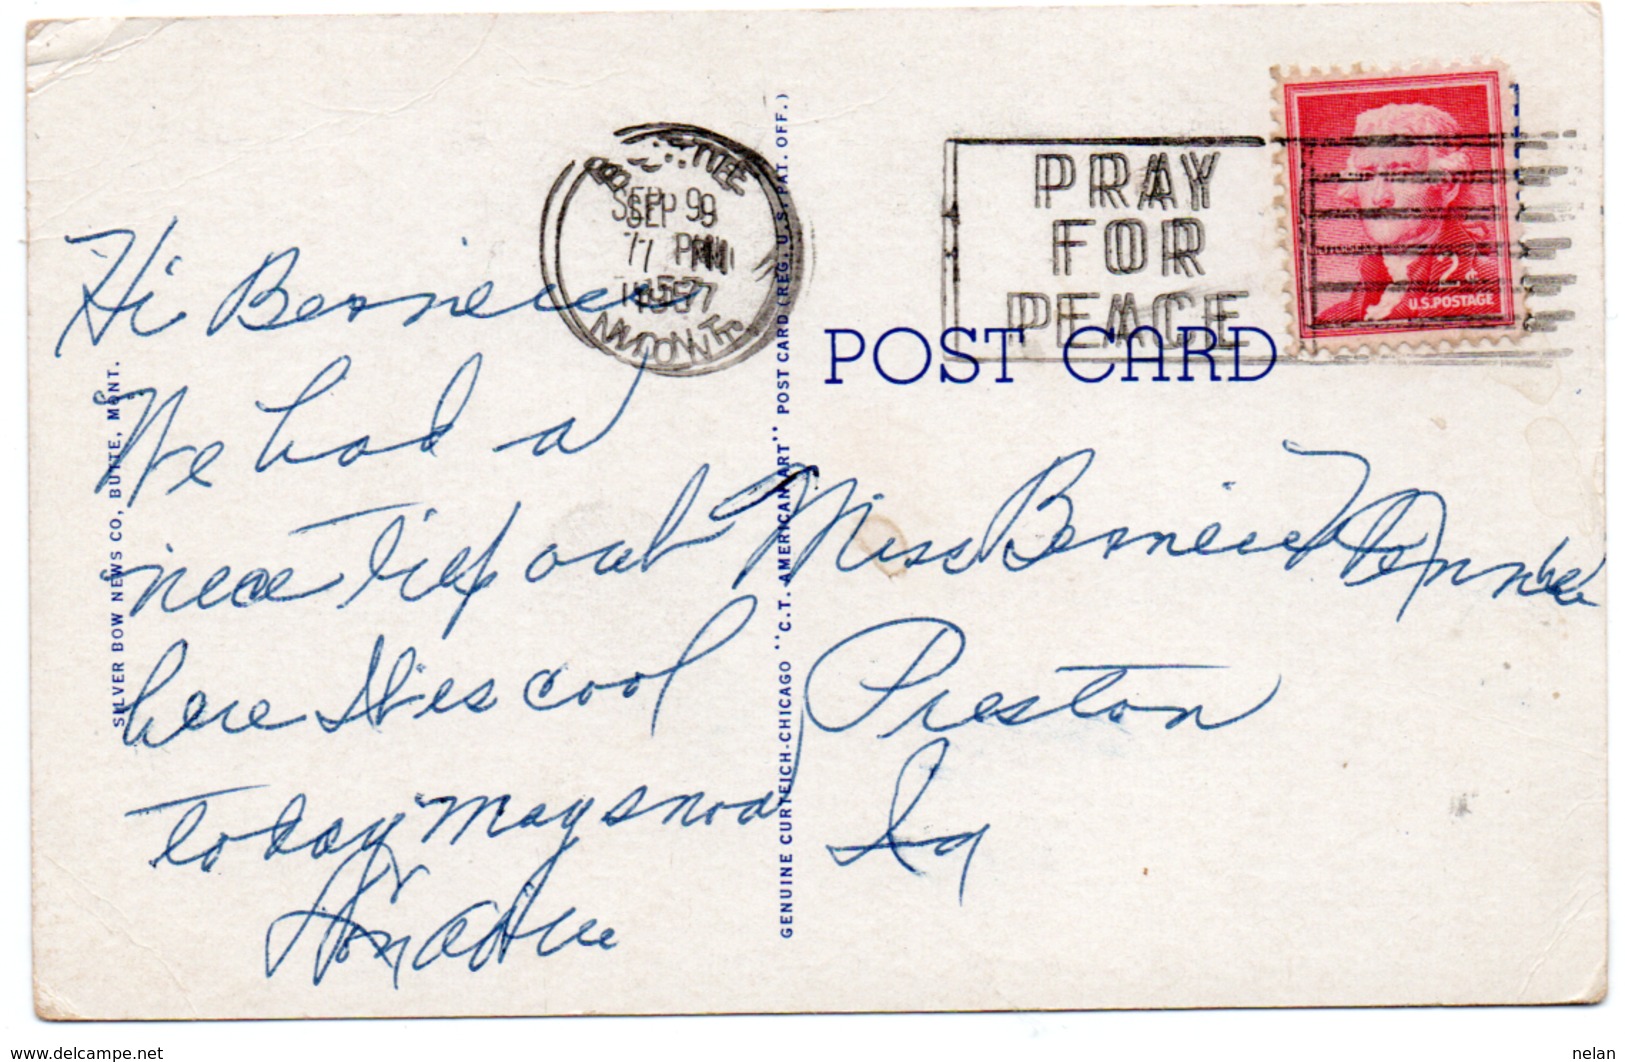 SEP 9
7 PM
1957
MONT.
PRAY
FOR
PEACE
2¢
U.S. POSTAGE
POST CARD
Hi Berniece
We had a
nice trip out
here It is cool
today may snow
SILVER BOW NEWS CO., BUTTE, MONT.
GENUINE CURTEICH-CHICAGO "C.T. AMERICAN ART" POST CARD (REG. U.S. PAT. OFF.)
Miss Berniece
Preston
Ia
www.delcampe.net
nelan